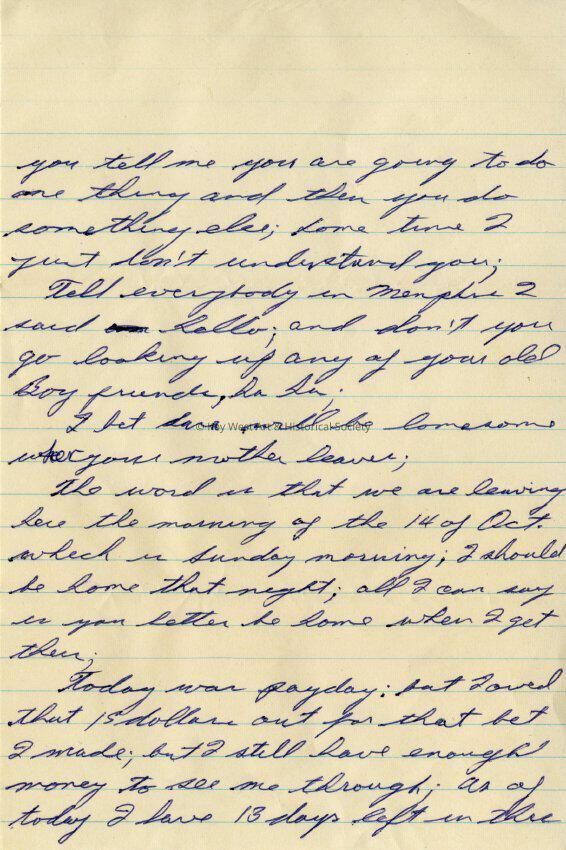 you tell me you are going to do
one thing and then you do
something else; some time I
just don't understand you;
Tell everybody in Memphis I
said hello; and don't you
go looking up any of your old
Boy friends, Ha Ha;
I bet will be lonesome
© Key West Art & Historical Society
when your mother leaves;
The word is that we are leaving
here the morning of the 14 of Oct.
wheck is sunday morning; I should
be home that night; all I can say
is you better be home when I get
there;
Today was payday; but I owed
that 15 dollars out for that bet
I made; but I still have enough
money to see me through; as of
today I have 13 days left in this